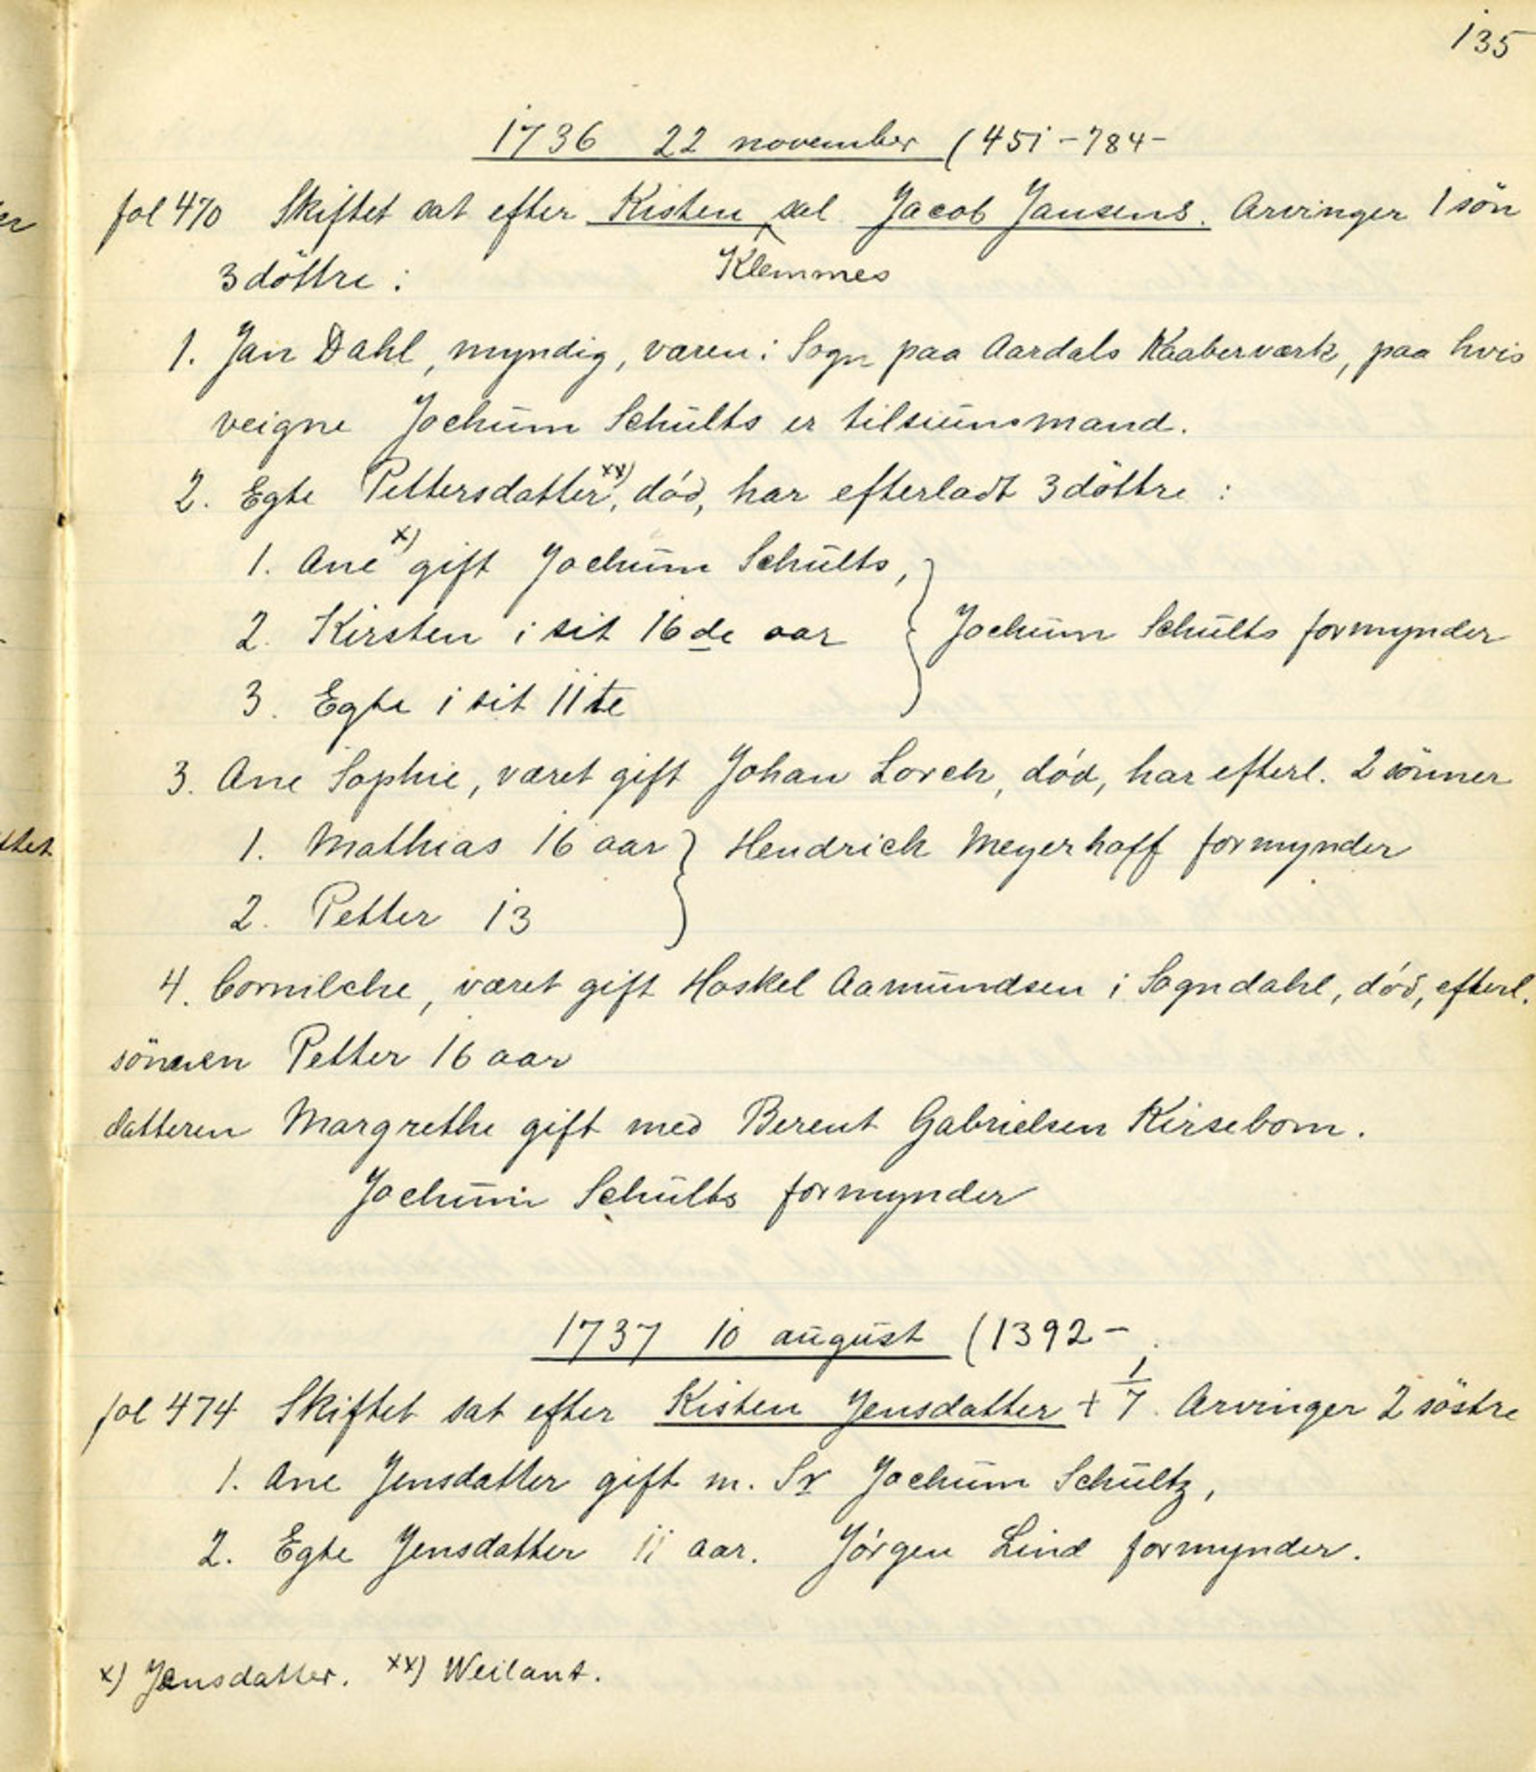 135
1736 22 november (451-784-
fol 470 Skiftet sat efter Kisten sal Jacob Jansens. Arvinger 1 sön
Klemmes
3 döttre :
1. Jan Dahl, myndig, væren i Sogn paa Aardals Kaaberværk, paa hvis
veigne Jochum Schults er tilsiunsmand.
2. Egte Pettersdatter xx), död, har efterladt 3 döttre :
1. Ane x) gift Jochum Schults,
2. Kirsten i sit 16de aar } Jochum Schults formynder
3. Egte i sit 11te
3. Ane Sophie, været gift Johan Lorch, död, har efterl. 2 sönner
1. Mathias 16 aar } Hendrich Meyerhoff formynder
2. Petter 13
4. Cornilche, været gift Haskel Aamundsen i Sogndahl, död, efterl.
sönnen Petter 16 aar
datteren Margrethe gift med Berent Gabrielsen Kirsebom.
Jochum Schults formynder
1737 10 august (1392-
fol 474 Skiftet sat efter Kisten Jensdatter + 1/7. Arvinger 2 söstre
1. Ane Jensdatter gift m. Sr Jochum Schultz,
2. Egte Jensdatter 11 aar. Jörgen Lind formynder.
x) Jensdatter. xx) Weilant.